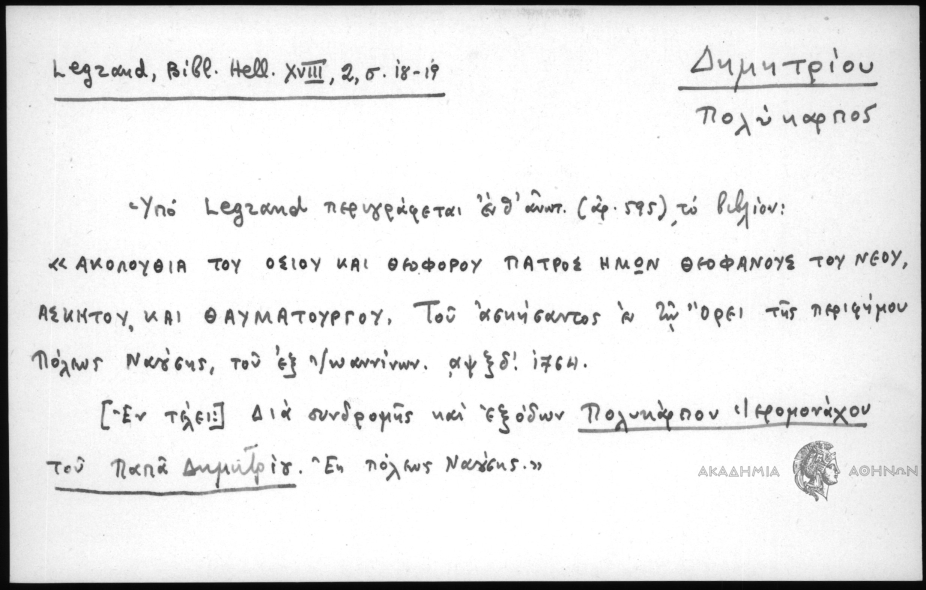 Legrand, Bibl. Hell. XVIII, 2, σ. 18-19
Δημητρίου
Πολύκαρπος
Ὑπό Legrand περιγράφεται ἐνθ' ἀνωτ. (ἀρ. 595) τό βιβλίον:
« ΑΚΟΛΟΥΘΙΑ ΤΟΥ ΟΣΙΟΥ ΚΑΙ ΘΕΟΦΟΡΟΥ ΠΑΤΡΟΣ ΗΜΩΝ ΘΕΟΦΑΝΟΥΣ ΤΟΥ ΝΕΟΥ,
ΑΣΚΗΤΟΥ, ΚΑΙ ΘΑΥΜΑΤΟΥΡΓΟΥ. Τοῦ ἀσκήσαντος ἐν τῷ Ὄρει τῆς περιφήμου
Πόλεως Ναούσης, τοῦ ἐξ Ἰωαννίνων. ͵αψξδ'. 1764.
[Ἐν τέλει:] Διά συνδρομῆς καί ἐξόδων Πολυκάρπου Ἱερομονάχου
τοῦ Παπᾶ Δημητρίου. Ἐκ πόλεως Ναούσης.»
ΑΚΑΔΗΜΙΑ ΑΘΗΝΩΝ